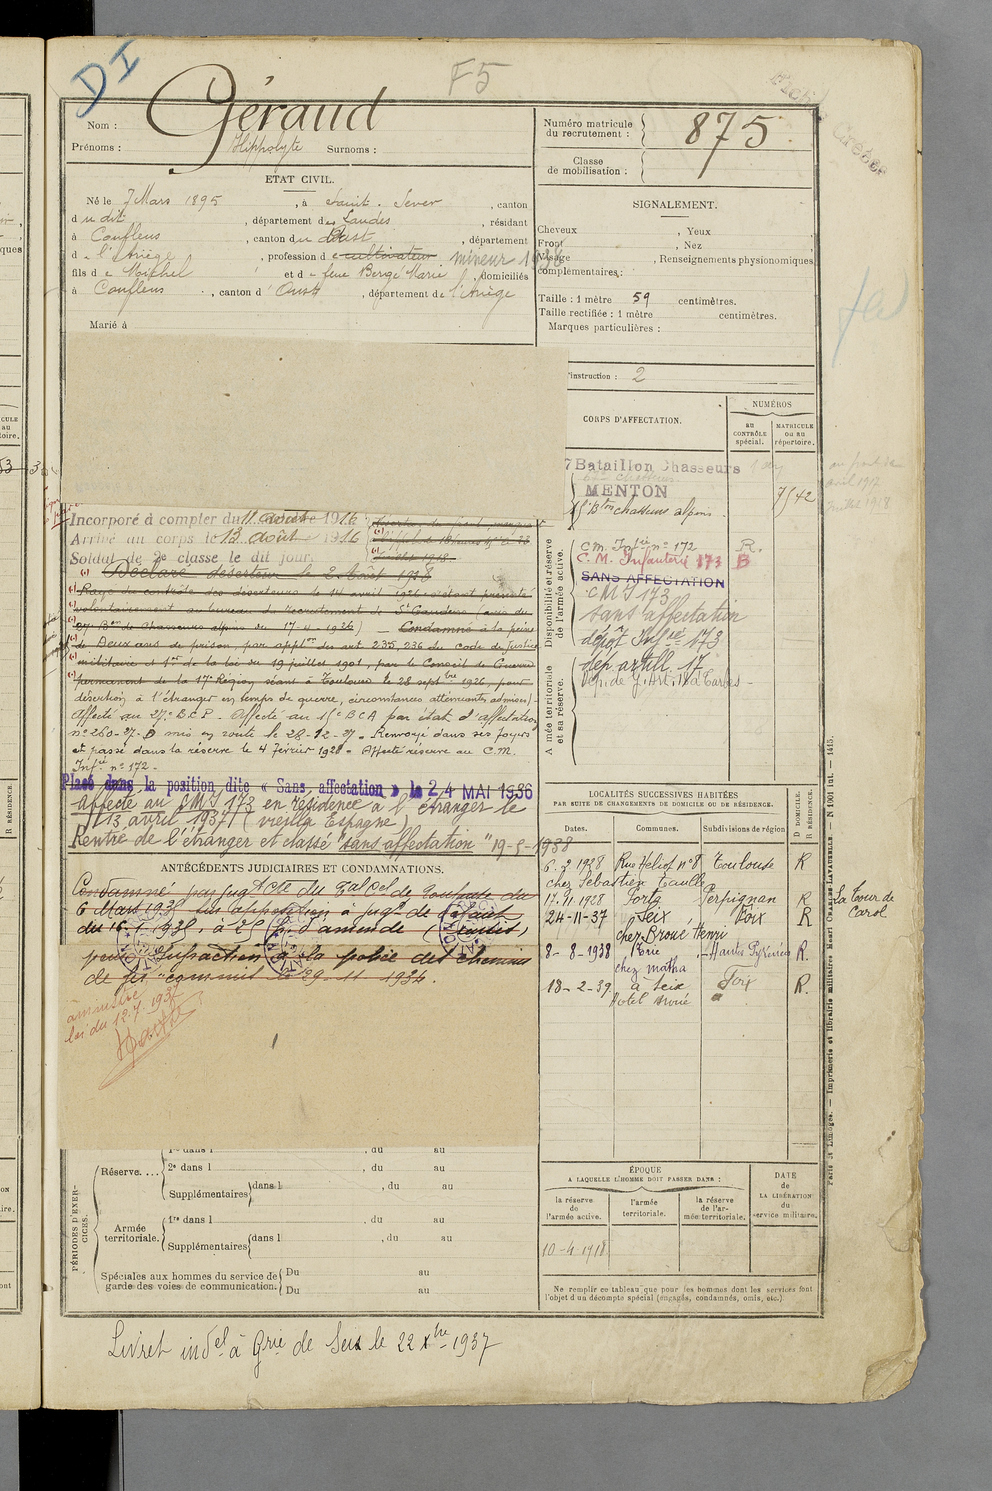 DI
F5
Géraud
Nom :
Prénoms : Hippolyte Surnoms :
Numéro matricule
du recrutement :
875
Classe
de mobilisation :
ETAT CIVIL.
Né le 7 Mars 1895, à Saint-Sever, canton
du dit, département des Landes, résidant
à Couflens, canton du Oust, département
de l'Ariège, profession de cultivateur mineur 1938
fils de Michel et de feue Berge Marie, domiciliés
à Couflens, canton d'Oust, département de l'Ariège
Marié à
SIGNALEMENT.
Cheveux , Yeux ,
Front , Nez
Visage , Renseignements physionomiques
complémentaires :
Taille : 1 mètre 59 centimètres.
Taille rectifiée : 1 mètre centimètres.
Marques particulières :
'instruction : 2
CORPS D'AFFECTATION.
NUMÉROS
au
CONTRÔLE
spécial.
MATRICULE
ou au
répertoire.
7 Bataillon Chasseurs
MENTON
7542
15e Bton chasseurs alpins
Incorporé à compter du 11 août 1916
Arrivé au corps le 13 août 1916
Soldat de 2e classe le dit jour.
Déclaré déserteur le 2 Août 1918
Rayé du contrôle des déserteurs le 14 avril 1926 s'étant présenté
volontairement au bureau de recrutement de St Gaudens (avis du
27 Bon de Chasseurs alpins du 17-4-1926) - Condamné à la peine
de Deux ans de prison, par applon des art 235, 236 du code de Justice
militaire et 1er de la loi du 19 juillet 1901, par le Conseil de Guerre
permanent de la 17e Région, séant à Toulouse le 28 septbre 1926, pour
désertion à l'étranger en temps de guerre, circonstances atténuantes admises)
Affecté au 27e B.C.P. - Affecté au 15e BCA par état d'affectation
n° 260-27-D mis en route le 28-12-27 - Renvoyé dans ses foyers
et passé dans la réserve le 4 février 1928 - Affecté réserve au C.M.
Infie n° 172 -
Placé dans la position dite « Sans affectation » le 24 MAI 1936
Affecté au CMI 173 en résidence à l'étranger le
13 avril 1937 (vieilla Espagne)
Rentré de l'étranger et classé "sans affectation" 19-5-1938
Disponibilité et réserve
de l'armée active.
C.M. Infie n° 172 R.
C. M. Infanterie 173 B
SANS AFFECTATION
CMI 173
sans affectation
dépôt Infie 173
Armée territoriale
et sa réserve.
dep artill. 17
Dép. de g. Art. 18 à Tarbes -
ANTÉCÉDENTS JUDICIAIRES ET CONDAMNATIONS.
Condamné par jug
6 Mars 1935 sur opposition à jugt de défaut
du 16-1-1935, à 25 f. d'amende
pour Infraction à la police des chemins
de fer commis le 29-11-1934.
amnistié
loi du 12.7.1937
LOCALITÉS SUCCESSIVES HABITÉES
PAR SUITE DE CHANGEMENTS DE DOMICILE OU DE RÉSIDENCE.
Dates. Communes. Subdivisions de région
D DOMICILE.
R RÉSIDENCE.
6. 2 1928 Rue Héliot n° 8 Toulouse R
chez Sébastien
17.11 1928 Porta Perpignan R La Tour de
Carol
24-11-37 Seix Foix R
chez Broué Henri
8-8-1938 - Hautes Pyrénées R.
chez matha
18-2-39. à Seix Foix R.
Hotel
PÉRIODES D'EXERCICES.
Réserve....
1re dans l , du au
2e dans l , du au
Supplémentaires dans l , du au
Armée
territoriale.
1re dans l , du au
Supplémentaires dans l , du au
Spéciales aux hommes du service de
garde des voies de communication.
Du au
Du au
ÉPOQUE
A LAQUELLE L'HOMME DOIT PASSER DANS :
la réserve
de
l'armée active.
l'armée
territoriale.
la réserve
de l'ar-
mée territoriale.
DATE
de
LA LIBÉRATION
du
service militaire.
10-4-1918
Ne remplir ce tableau que pour les hommes dont les services font
l'objet d'un décompte spécial (engagés, condamnés, omis, etc.).
Paris et Limoges. — Imprimerie et librairie militaires Henri CHARLES-LAVAUZELLE. — N 1001 int. — 1415.
Livret indel à Grie de Seix le 22 Xbre 1937